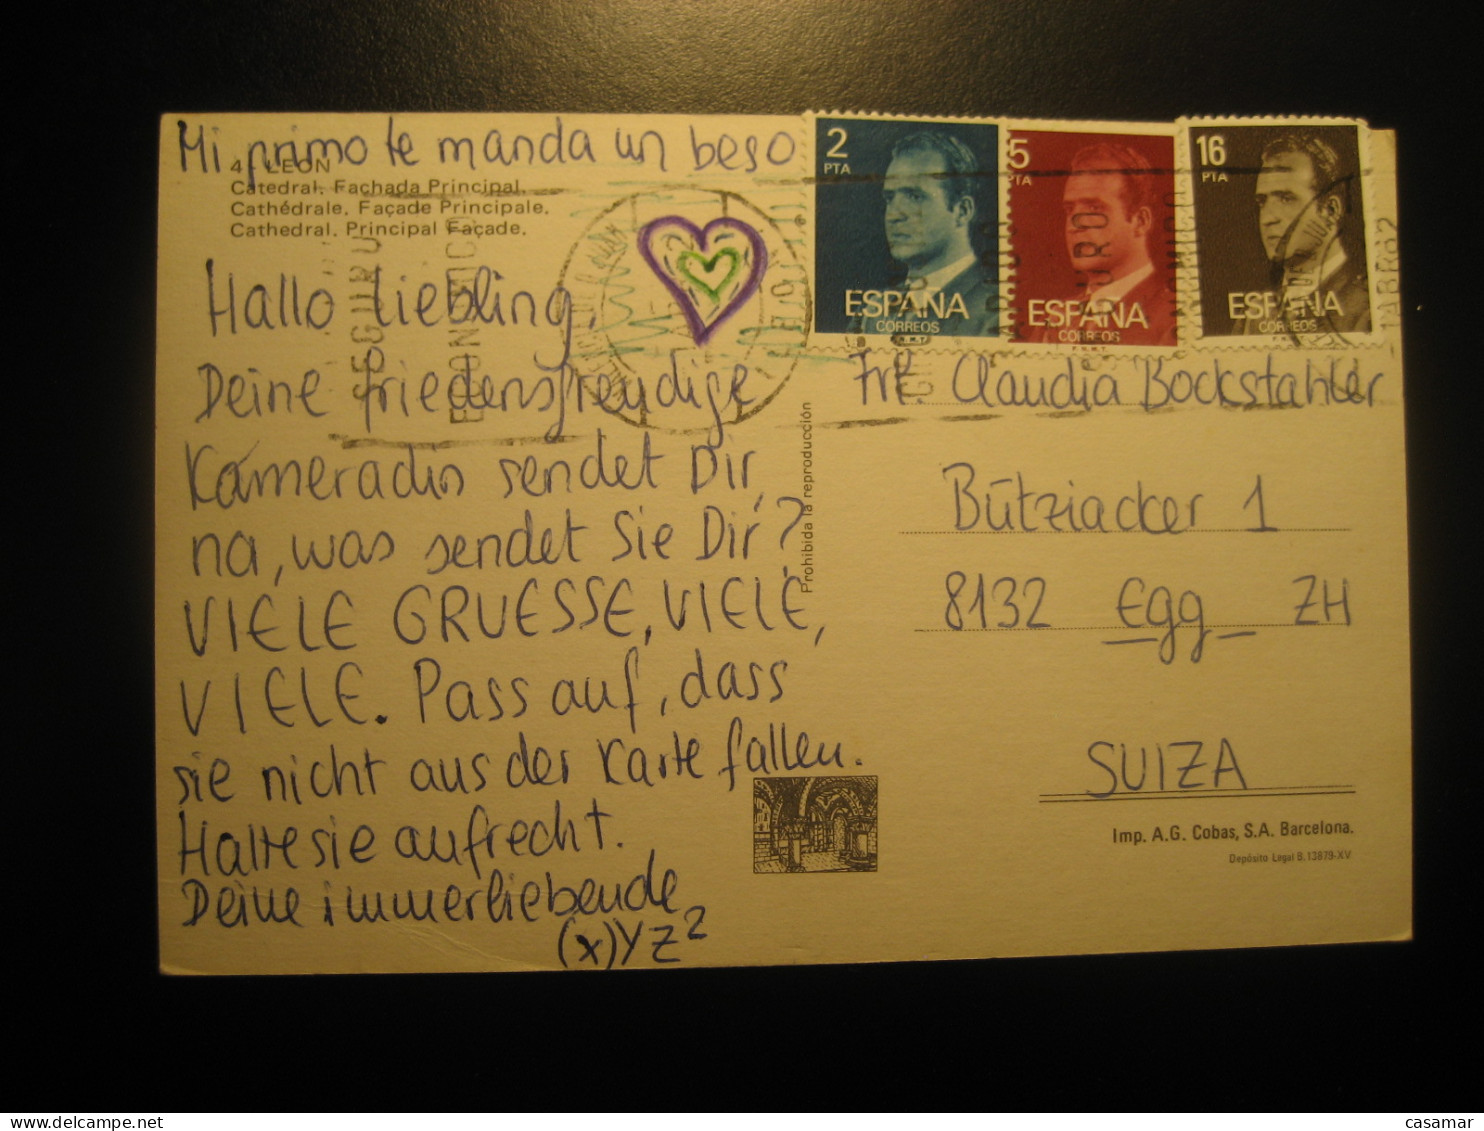 Mi primo te manda un beso
4. LEON
Catedral. Fachada Principal.
Cathédrale. Façade Principale.
Cathedral. Principal Façade.
Hallo Liebling.
Deine friedensfreudige
Kameradin sendet Dir,
na, was sendet Sie Dir?
VIELE GRUESSE, VIELE,
VIELE. Pass auf, dass
sie nicht aus der Karte fallen.
Halte sie aufrecht.
Deine immerliebende
(x)YZ²
2 PTA
ESPAÑA
CORREOS
5 PTA
ESPAÑA
CORREOS
F.N.M.T.
16 PTA
ESPAÑA
CORREOS
SEGURO
Prohibida la reproducción
Claudia Bockstahler
Bütziacker 1
8132 Egg ZH
SUIZA
Imp. A.G. Cobas, S.A. Barcelona.
Depósito Legal B. 13879-XV
casamar
delcampe.net